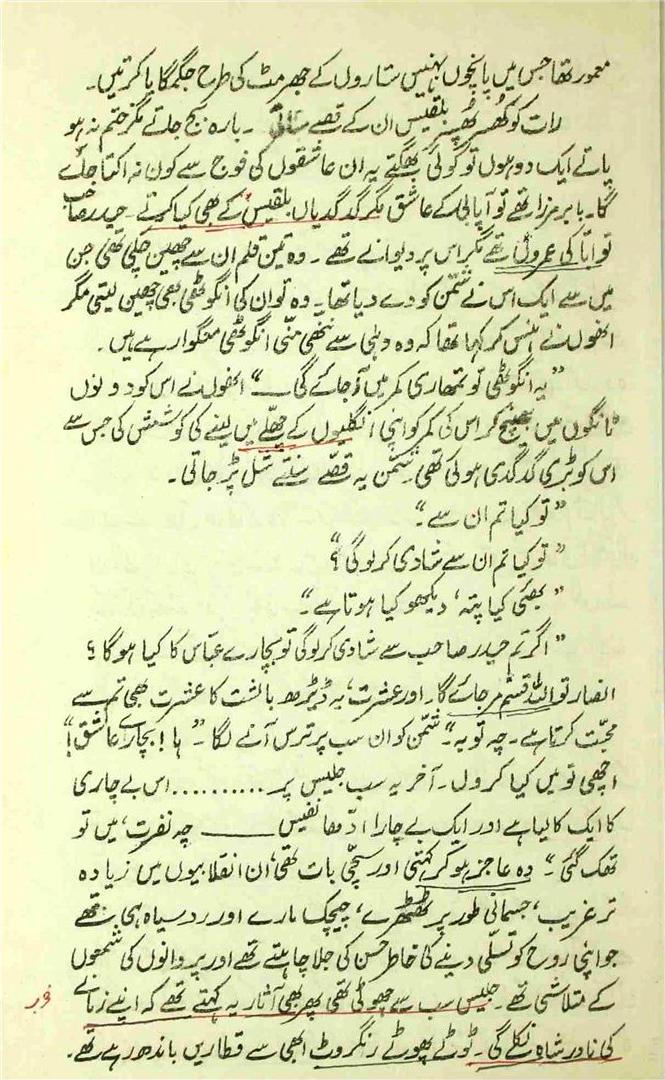 معمور تھا جس میں پانچوں بہنیں ستاروں کے جھرمٹ کی طرح جگمگایا کرتیں۔
رات کو کھسر پھسر بلقیس ان کے قصے سناتی۔ بارہ بج جاتے مگر ختم نہ ہو
پاتے ایک دو ہوں تو کوئی بھگتے یہ ان عاشقوں کی فوج سے کون نہ اکتا جائے
گا۔ بابر مرزا تھے تو آپا بی کے عاشق مگر گدگدیاں بلقیس کے بھی کیا کرتے۔ حیدر صاحب
تو ابا کی عمر والے تھے مگر اس پر دیوانے تھے۔ وہ تین قلم ان سے چھین چکی تھی جن
میں سے ایک اس نے شمّن کو دے دیا تھا۔ وہ تو ان کی انگوٹھی بھی چھین لیتی مگر
انھوں نے ہنس کر کہا تھا کہ وہ دہلی سے ننھی منّی انگوٹھی منگوا رہے ہیں۔
”یہ انگوٹھی تو تمھاری کمر میں آ جائے گی ــــ“ انھوں نے اس کو دونوں
ٹانگوں میں بھینچ کر اس کی کمر کو اپنی انگلیوں کے چھلّے میں لینے کی کوشش کی جس سے
اس کو بڑی گدگدی ہوئی تھی۔ شمّن یہ قصّے سنتے سنتے شل پڑ جاتی۔
”تو کیا تم ان سے۔“
”تو کیا تم ان سے شادی کر لوگی؟“
”بھئی کیا پتہ، دیکھو کیا ہوتا ہے۔“
”اگر تم حیدر صاحب سے شادی کر لوگی تو بچارے عبّاس کا کیا ہوگا؟
انصار تو اللہ قسم مر جائے گا۔ اور عشرت، یہ ڈیڑھ بالشت کا عشرت بھی تم سے
محبّت کرتا ہے۔ چہ توبہ۔“ شمّن کو ان سب پر ترس آنے لگا۔ ”ہا! بچارے عاشق!“
اچھی تو میں کیا کروں۔ آخر یہ سب جلیس پر .......... اس بے چاری
کا ایک کالیا ہے اور ایک بے چارا ادھ نفیس ــــــ چہ نفرت، میں تو
تھک گئی۔“ وہ عاجز ہو کر کہتی اور سچّی بات تھی، ان انقلابیوں میں زیادہ
تر غریب، جسمانی طور پر ٹھٹھرے، چیچک مارے اور رو سیاہ ہی تھے
جو اپنی روح کو تسلّی دینے کی خاطر حسن کی جلا چاہتے تھے اور پروانوں کی شمعوں
کے متلاشی تھے۔ جلیس سب سے چھوٹی تھی پھر بھی آثار یہ کہتے تھے کہ اپنے زمانے
کی نادر شاہ نکلے گی۔ ٹوٹے پھوٹے رنگروٹ ابھی سے قطاریں باندھ رہے تھے۔